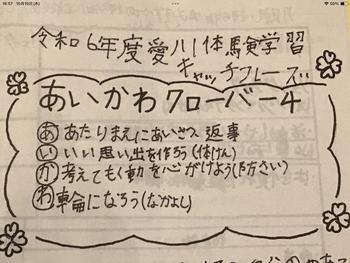 16:57
令和6年度愛川体験学習
キャッチフレーズ
あいかわクローバー4
あ あたりまえにあいさつ 返事
い いい思い出を作ろう(体けん)
か 考えてもく動を心がけよう(防さい)
わ 輪になろう(なかよし)